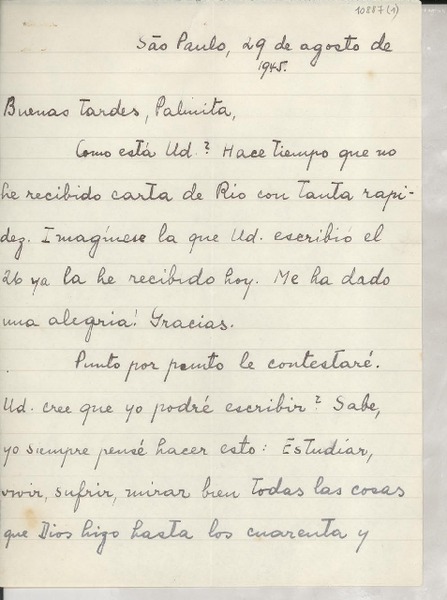 10887(1)
São Paulo, 29 de agosto de
1945.
Buenas tardes, Palmita,
Como está Ud.? Hace tiempo que no
he recibido carta de Rio con tanta rapi-
dez. Imagínese la que Ud. escribió el
26 ya la he recibido hoy. Me ha dado
una alegria! Gracias.
Punto por punto le contestaré.
Ud. cree que yo podré escribir? Sabe,
yo siempre pensé hacer esto: Estudiar,
vivir, sufrir, mirar bien todas las cosas
que Dios hizo hasta los cuarenta y